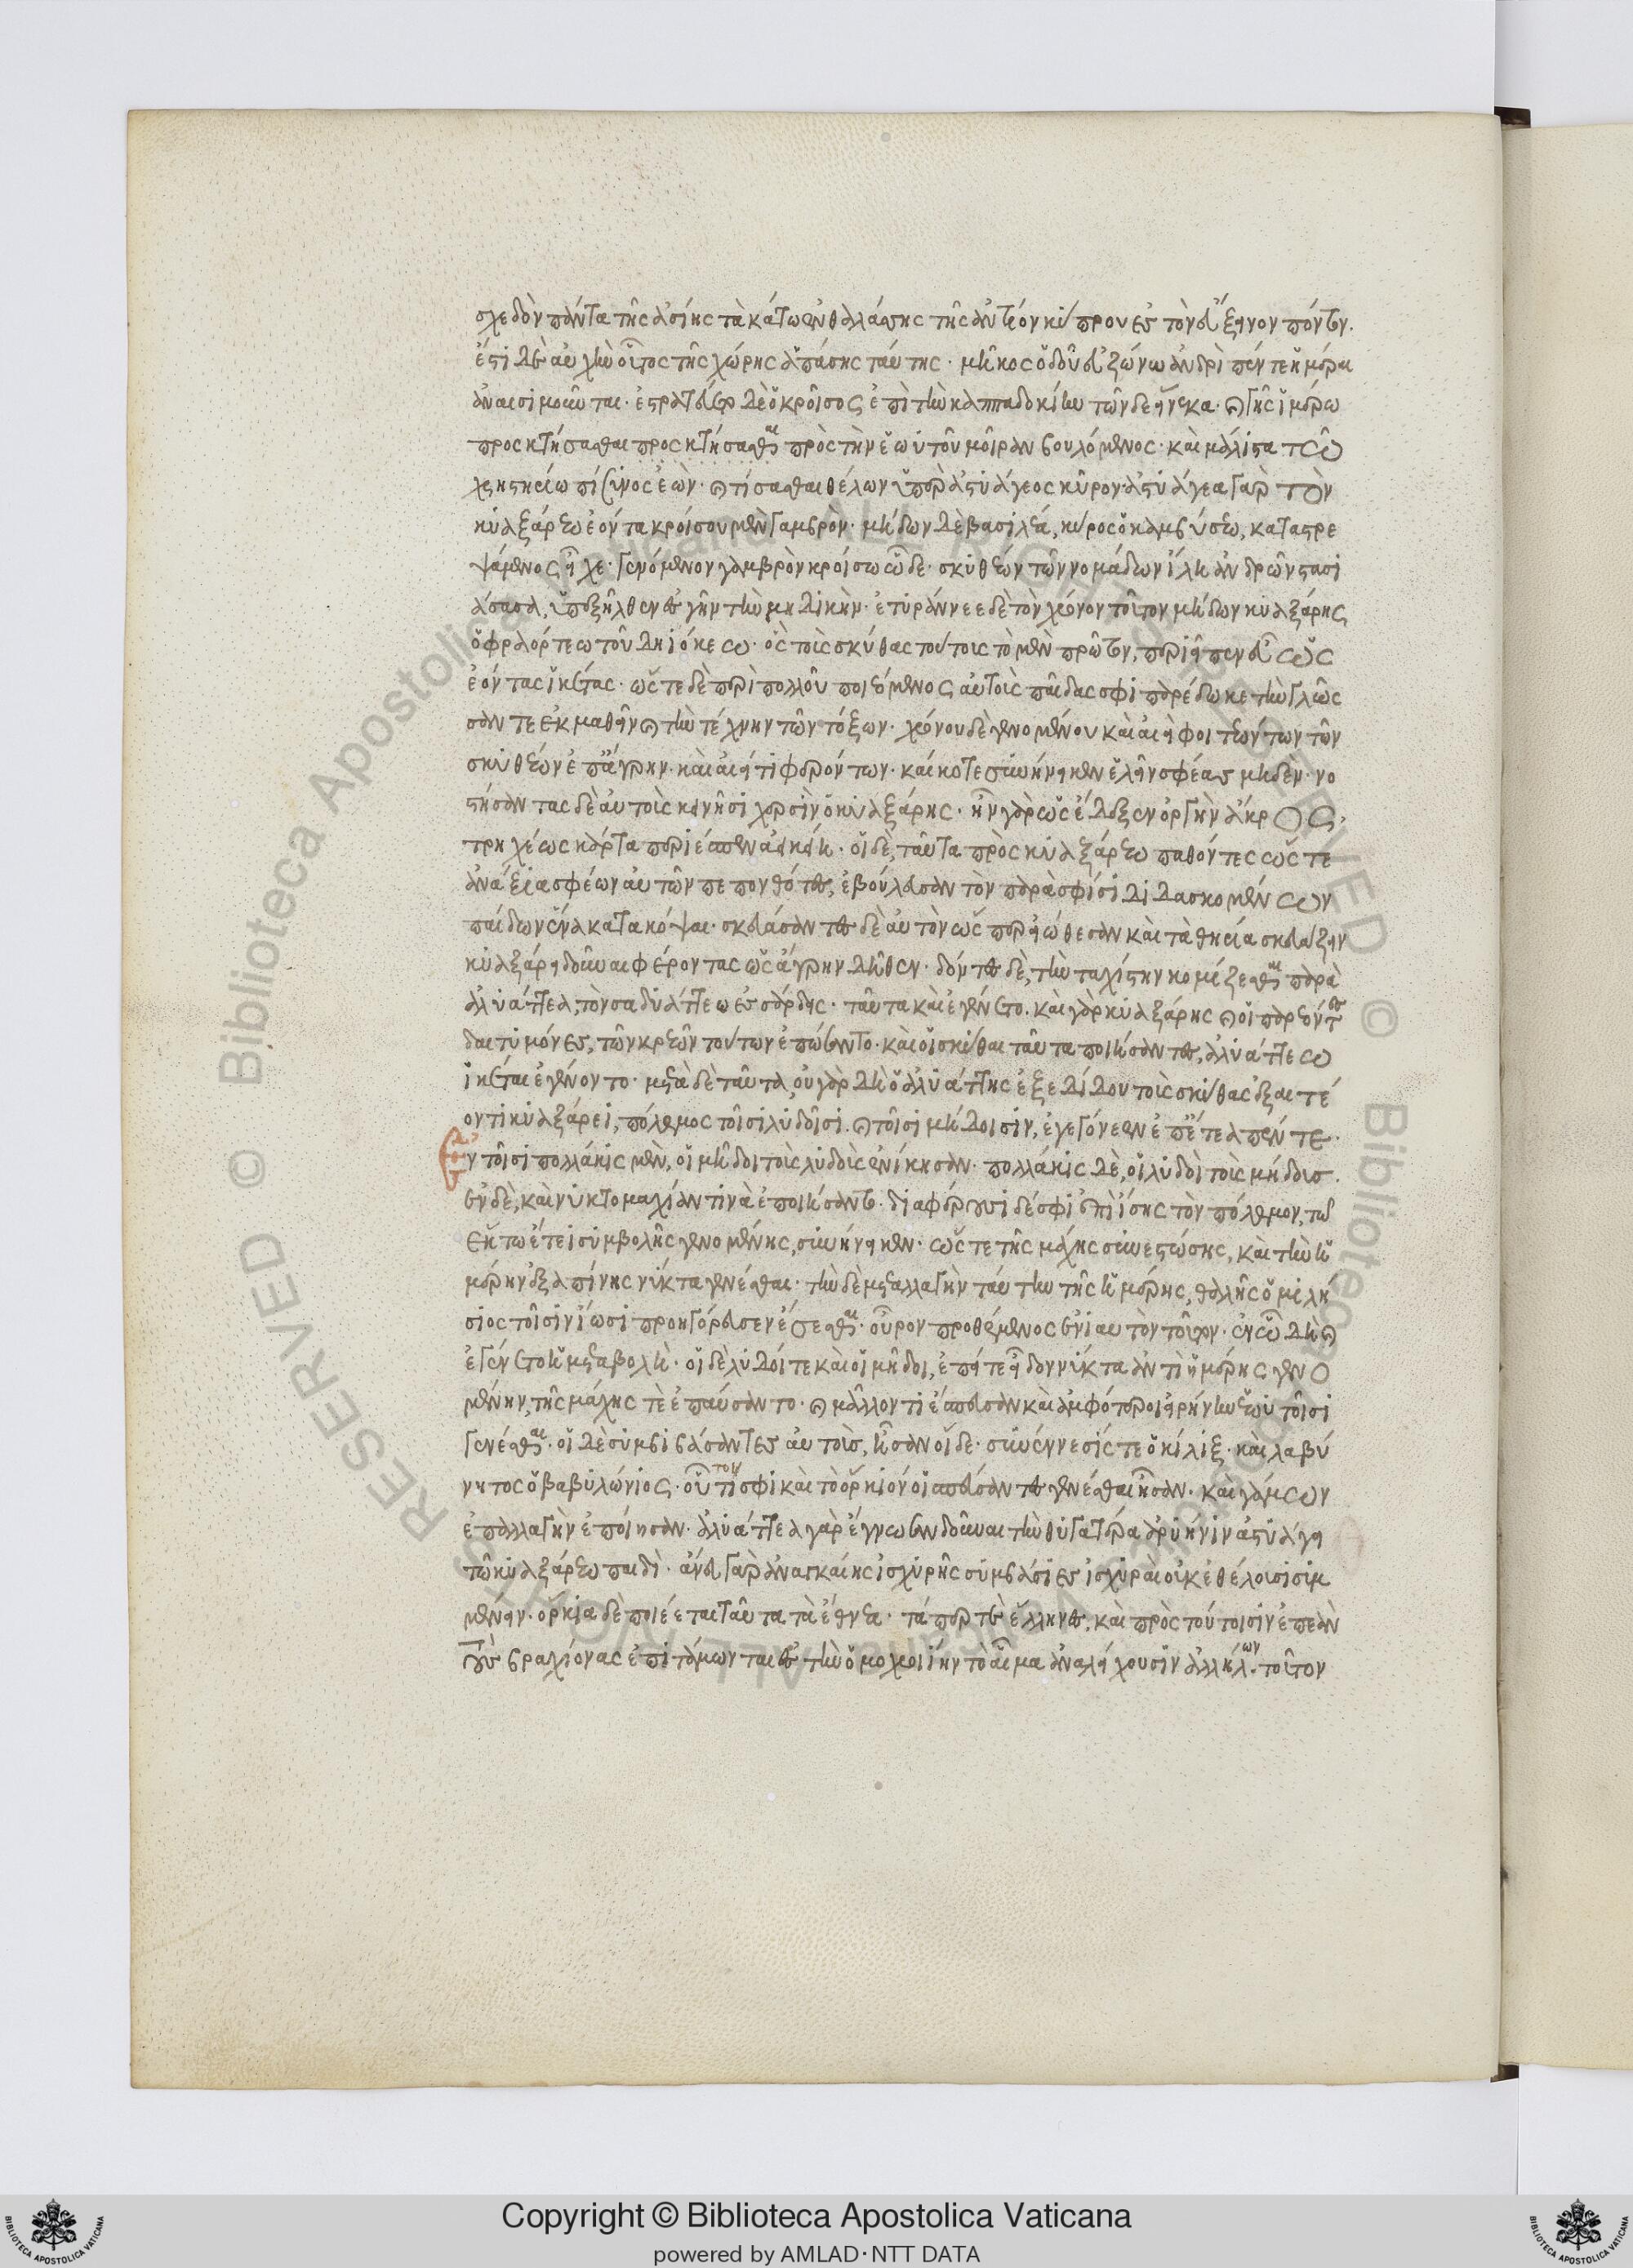 σχεδὸν πάντα τῆς ἀσίης τὰ κάτω ἐν θαλάσσης τῆς ἀντίον κύπρου ἐς τὸν εὔξεινον πόντον.
ἔστι δὲ αὐχὴν οὗτος τῆς χώρης ἁπάσης ταύτης· μῆκος ὁδοῦ εὐζώνω ἀνδρὶ πέντε ἡμέραι
ἀναισιμοῦνται· ἐστρατεύετο δὲ ὁ κροῖσος ἐπὶ τὴν καππαδοκίην τῶν δε εἵνεκα· καὶ γῆς ἱμέρω
προσκτήσασθαι προσκτήσασθαι πρὸς τὴν ἑωυτοῦ μοῖραν βουλόμενος· καὶ μάλιστα τῶ
χρηστηρίω πίσυνος ἐὼν· καὶ τίσασθαι θέλων ὑπὲρ ἀστυάγεος κῦρον· ἀστυάγεα γὰρ τὸν
κυαξάρεω ἐόντα κροίσου μὲν γαμβρὸν· μήδων δὲ βασιλέα, κῦρος ὁ καμβύσεω, καταστρε
ψάμενος εἶχε· γενόμενον γαμβρὸν κροίσω ὧδε· σκυθέων τῶν νομάδων ἴλη ἀνδρῶν στασι
άσασα, ὑπεξῆλθεν ἐς γῆν τὴν μηδικὴν· ἐτυράννεε δὲ τὸν χρόνον τοῦτον μήδων κυαξάρης
ὁ φραόρτεω τοῦ δηιόκεω· ὃς τοὺς σκύθας τούτους τὸ μὲν πρῶτον, περιεῖπεν εὖ ὡς
ἐόντας ἱκέτας· ὥστε δὲ περὶ πολλοῦ ποιεόμενος αὐτοὺς παῖδας σφι παρέδωκε τὴν γλῶσ
σάν τε ἐκμαθεῖν καὶ τὴν τέχνην τῶν τόξων· χρόνου δὲ γενομένου καὶ αἰεὶ φοιτεόντων τῶν
σκυθέων ἐπ' ἄγρην· καὶ αἰεί τι φερόντων· καί κοτε συνήνεικεν ἑλεῖν σφέας μηδὲν· νο
στήσαντας δὲ αὐτοὺς κεινῆσι χερσὶν ὁ κυαξάρης· ἦν γὰρ ὡς ἔδοξεν ὀργὴν ἄκρος,
τρηχέως κάρτα περιέσπεν ἀεικείη· οἱ δὲ, ταῦτα πρὸς κυαξάρεω παθόντες ὥστε
ἀνάξια σφέων αὐτῶν πεπονθότες, ἐβούλευσαν τὸν παρὰ σφίσι διδασκομένων
παίδων ἕνα κατακόψαι· σκευάσαντες δὲ αὐτὸν ὡς περ εἰώθεσαν καὶ τὰ θηρία σκευάζειν
κυαξάρη δοῦναι φέροντας ὡς ἄγρην δῆθεν· δόντες δὲ, τὴν ταχίστην κομίζεσθαι παρὰ
ἀλυάττεα, τὸν σαδυάττεω ἐς σάρδις· ταῦτα καὶ ἐγένετο. καὶ γὰρ κυαξάρης καὶ οἱ παρεόντες
δαιτυμόνες, τῶν κρεῶν τούτων ἐπάσαντο· καὶ οἱ σκύθαι ταῦτα ποιήσαντες, ἀλυάττεω
ἱκέται ἐγένοντο· μετὰ δὲ ταῦτα, οὐ γὰρ δὴ ὁ ἀλυάττης ἐξεδίδου τοὺς σκύθας ἐξαιτέ
οντι κυαξάρει, πόλεμος τοῖσι λυδοῖσι. καὶ τοῖσι μήδοισιν, ἐγεγόνεεν ἐπ' ἔτεα πέντε.
ἐν τοῖσι πολλάκις μὲν, οἱ μῆδοι τοὺς λυδοὺς ἐνίκησαν· πολλάκις δὲ, οἱ λυδοὶ τοὺς μήδους.
ἐν δὲ, καὶ νυκτομαχίαν τινὰ ἐποιήσαντο· διαφέρουσι δέ σφι ἐπὶ ἴσης τὸν πόλεμον, τῶ
ἕκτω ἔτει συμβολῆς γενομένης, συνήνεικεν· ὥστε τῆς μάχης συνεστώσης, καὶ τὴν ἡ
μέρην ἐξαπίνης νύκτα γενέσθαι· τὴν δὲ μεταλλαγὴν ταύτην τῆς ἡμέρης, θαλῆς ὁ μιλή
σιος τοῖσιν ἴωσι προηγόρευσεν ἔσεσθαι· οὖρον προθέμενος ἐνιαυτὸν τοῦτον· ἐν ᾧ δὴ καὶ
ἐγένετο ἡ μεταβολὴ· οἱ δὲ λυδοί τε καὶ οἱ μῆδοι, ἐπεί τε εἶδον νύκτα ἀντὶ ἡμέρης γενο
μένην, τῆς μάχης τὲ ἐπαύσαντο· καὶ μᾶλλόν τι ἔσπευσαν καὶ ἀμφότεροι εἰρήνην ἑωυτοῖσι
γενέσθαι· οἱ δὲ συμβιβάσαντες αὐτοὺς, ἦσαν οἵδε· συέννεσίς τε ὁ κίλιξ· καὶ λαβύ
νητος ὁ βαβυλώνιος· οὗτοί σφι καὶ τὸ ὅρκιον οἱ σπεύσαντες γενέσθαι ἦσαν· καὶ γάμων
ἐπαλλαγὴν ἐποίησαν· ἀλυάττεα γὰρ ἔγνωσαν δοῦναι τὴν θυγατέρα ἀρύηνιν ἀστυάγει
τῶ κυαξάρεω παιδὶ· ἄνευ γὰρ ἀναγκαίης ἰσχυρῆς συμβάσιες ἰσχυραὶ οὐκ ἐθέλουσι συμ
μένειν· ὅρκια δὲ ποιέεται ταῦτα τὰ ἔθνεα· τά περ τε ἕλληνες, καὶ πρὸς τούτοισιν ἐπεὰν
τοὺς βραχίονας ἐπιτάμωνται ἐς τὴν ὁμοχροιίην τὸ αἷμα ἀναλείχουσιν ἀλλήλων. τοῦτον
Copyright © Biblioteca Apostolica Vaticana
powered by AMLAD·NTT DATA